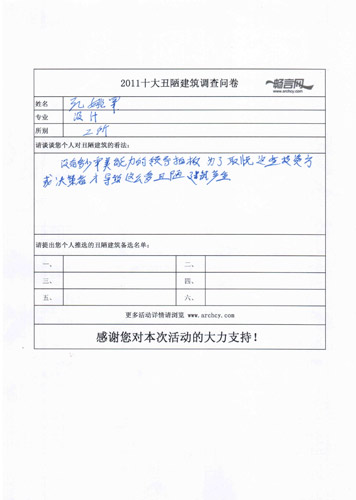 2011十大丑陋建筑调查问卷
畅言网
www.archcy.com
姓名
专业 设计
所别 二所
请谈谈您个人对丑陋建筑的看法：
没有 审美能力的领导拍板，为了取悦这些
或决策者才导致这么多丑陋建筑产生
请提出您个人推选的丑陋建筑备选名单：
一、 二、
三、 四、
五、 六、
更多活动详情请浏览 www.archcy.com
感谢您对本次活动的大力支持！